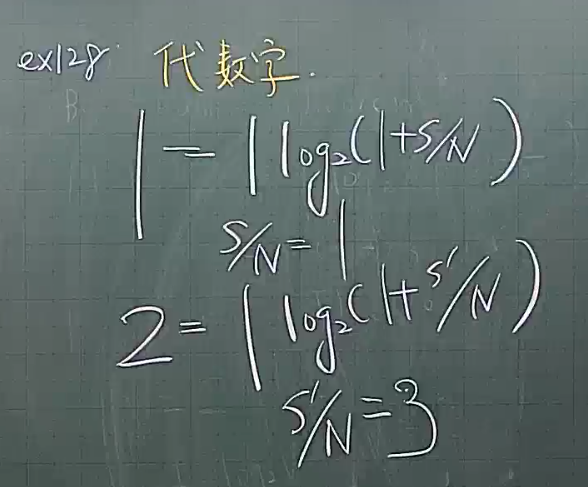 ex128. 代数字.
1 = 1 log₂(1+S/N)
S/N = 1
2 = 1 log₂(1+S'/N)
S'/N = 3